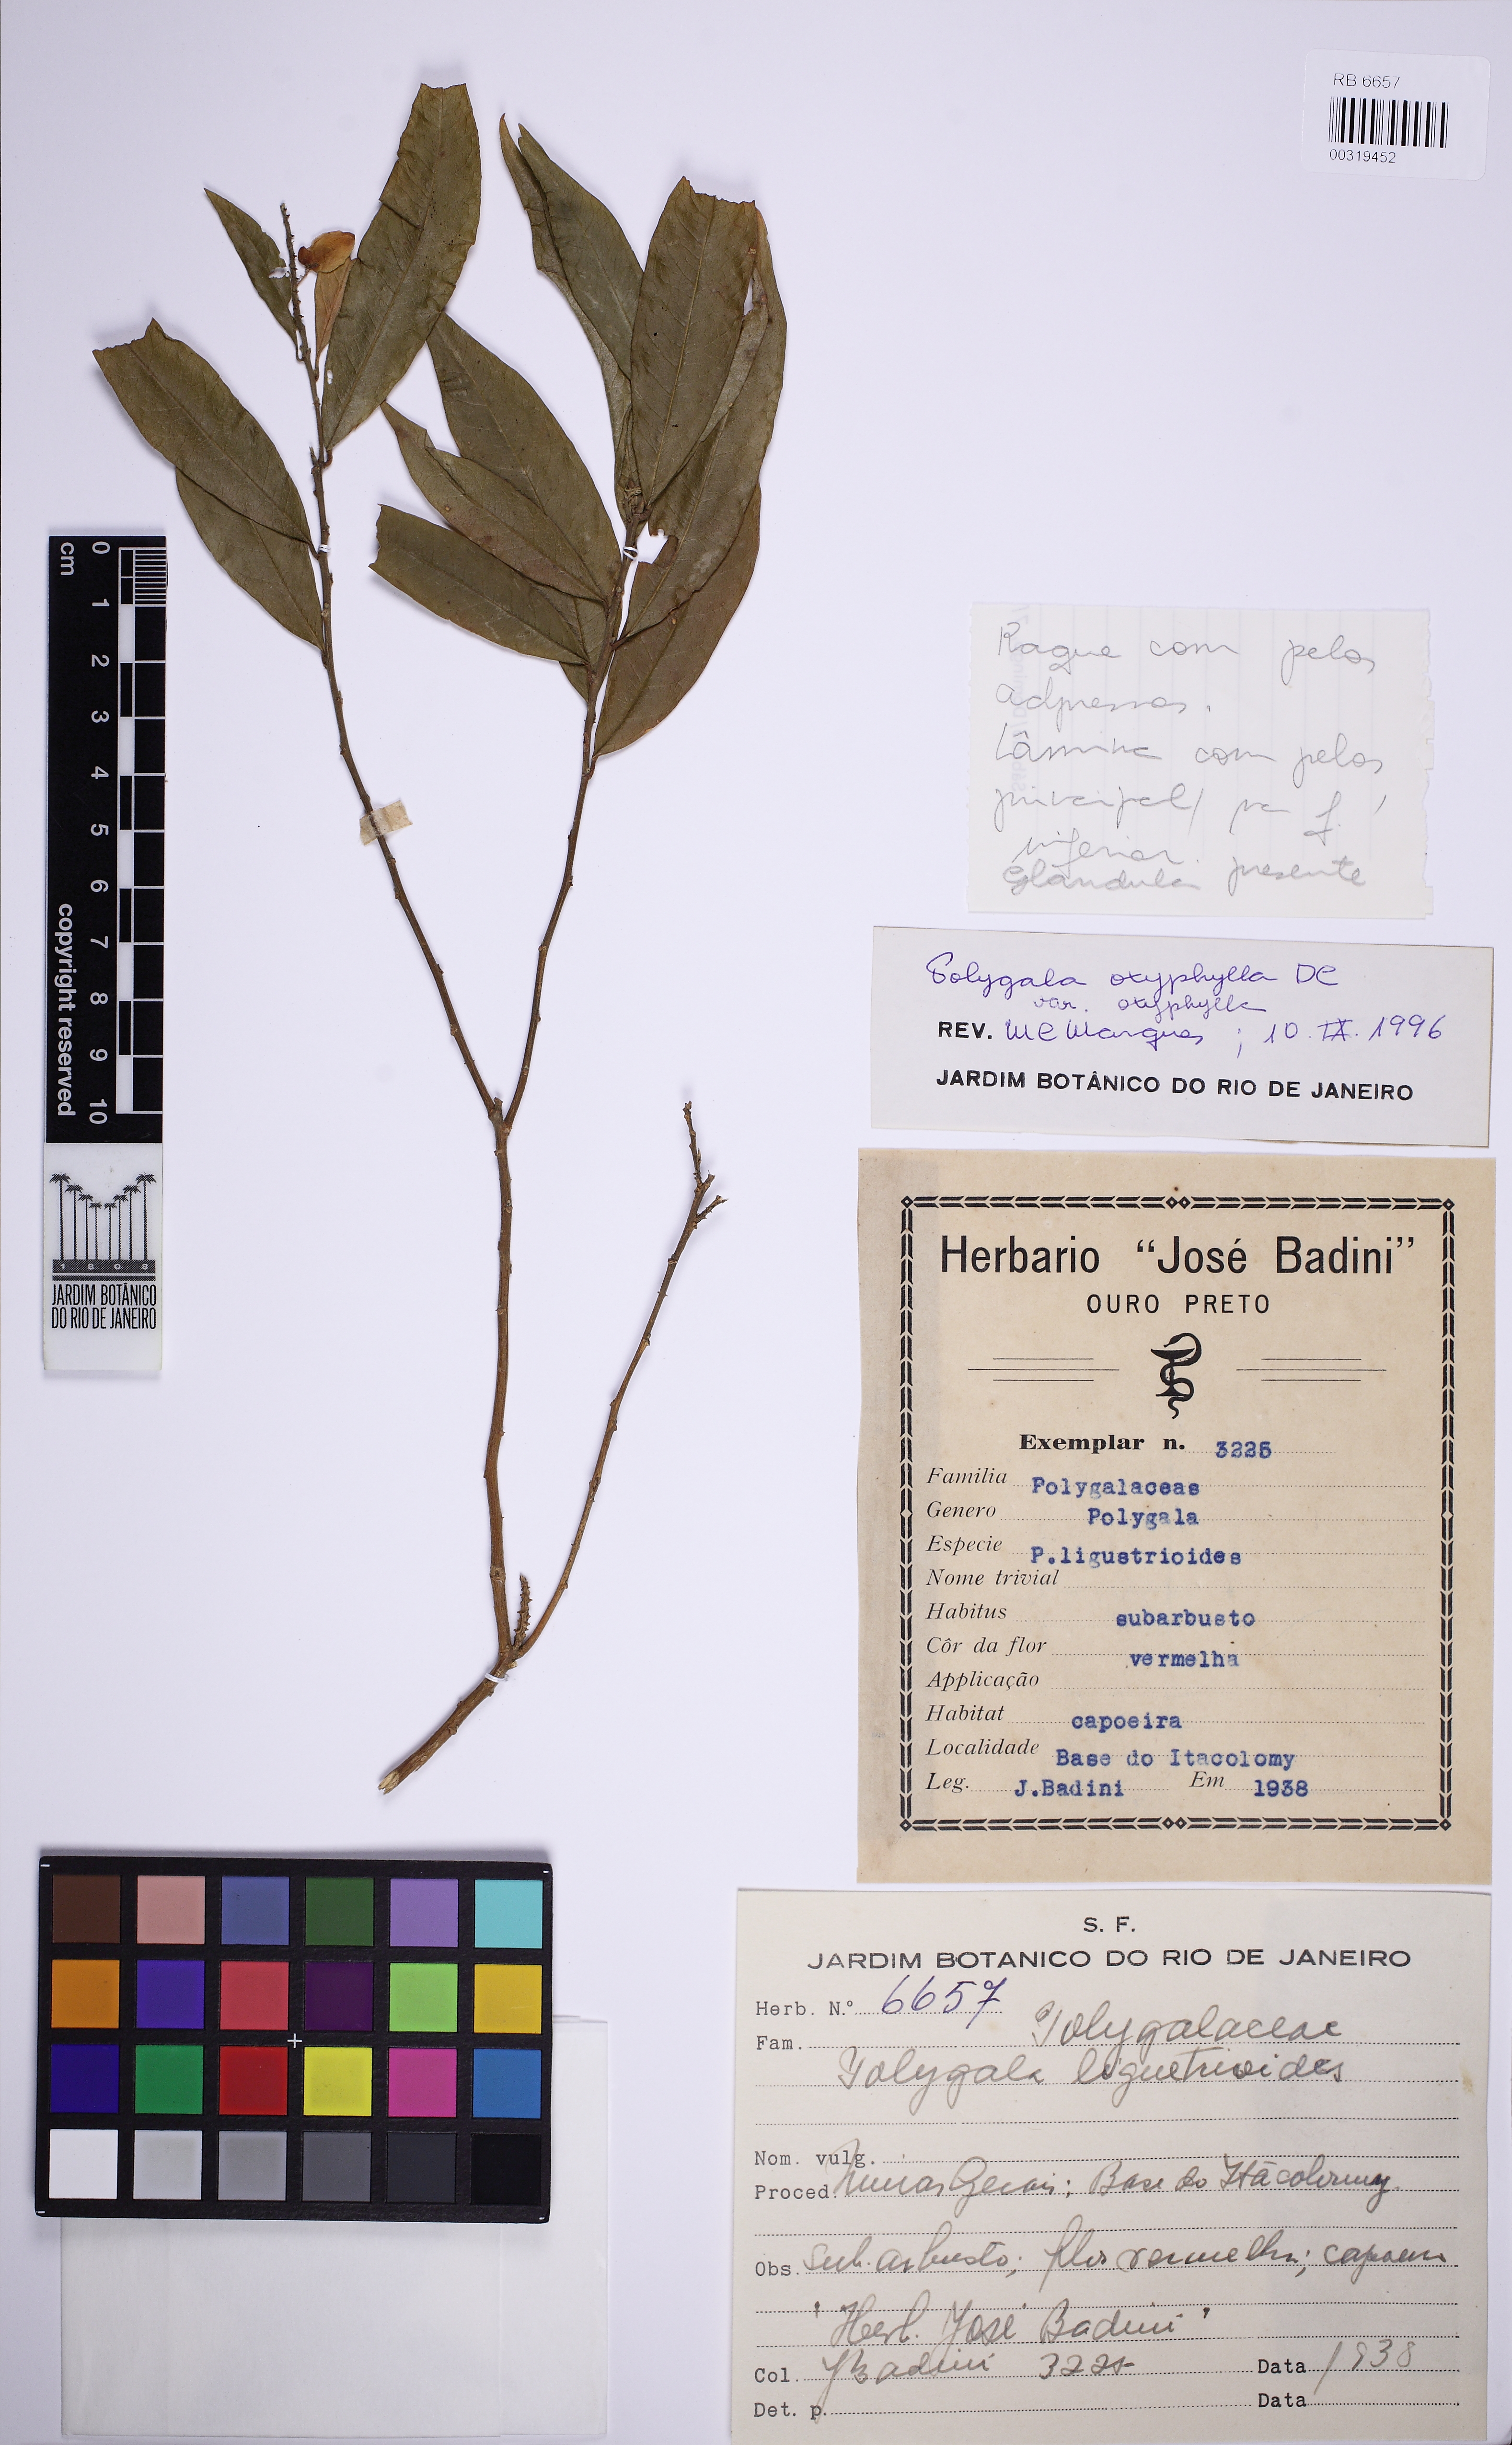 RB 6657
00319452
cm
0
1
2
3
4
5
6
7
8
9
10
copyright reserved
1808
JARDIM BOTÂNICO
DO RIO DE JANEIRO
Raque com pelos
adpressos.
Lâmina com pelos
principal/ na f.
inferior.
Glândula presente
Polygala oxyphylla DC
var. oxyphylla
REV. MCMarques ; 10.IX.1996
JARDIM BOTÂNICO DO RIO DE JANEIRO
Herbario "José Badini"
OURO PRETO
Exemplar n. 3225
Familia Polygalaceas
Genero Polygala
Especie P.ligustrioides
Nome trivial
Habitus subarbusto
Côr da flor vermelha
Applicação
Habitat capoeira
Localidade Base do Itacolomy
Leg. J.Badini Em 1938
S. F.
JARDIM BOTANICO DO RIO DE JANEIRO
Herb. N.º 6657
Fam. Polygalaceae
Polygala ligustrioides
Nom. vulg.
Proced. Minas Gerais; Base do Itacolomy.
Obs. Sub.arbusto; flor vermelha; capoeira
"Herb. José Badini"
Col. J Badini 3225 Data 1938
Det. p. Data